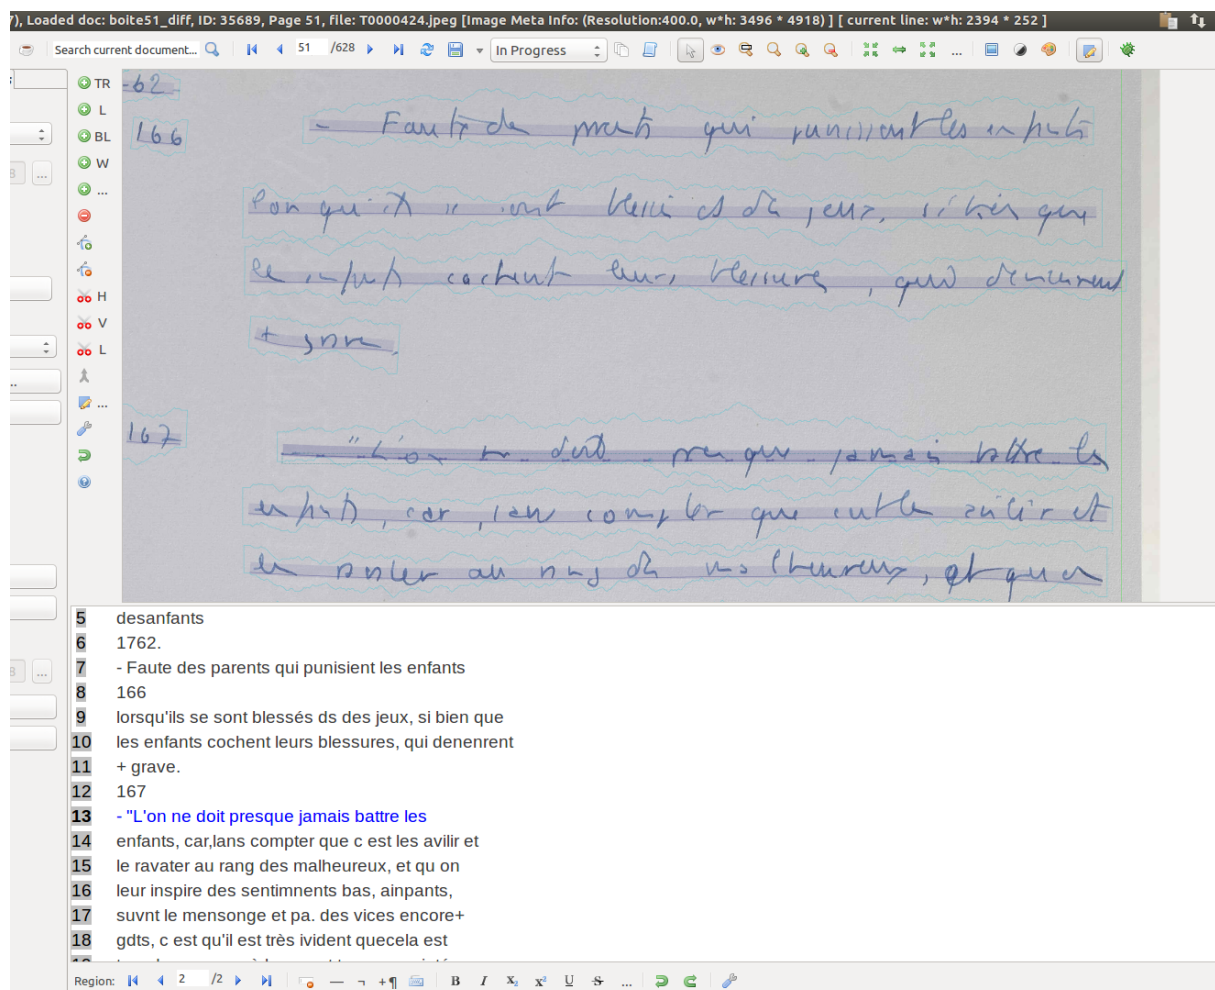 7), Loaded doc: boite51_diff, ID: 35689, Page 51, file: T0000424.jpeg [Image Meta Info: (Resolution:400.0, w*h: 3496 * 4918) ] [ current line: w*h: 2394 * 252 ]
Search current document... 51 /628 In Progress ...
TR
L
BL
W
...
H
V
L
...
-62
166 - Faute des parents qui punissent les enfants
lorsqu'ils se sont blessés ds des jeux, si bien que
les enfants cachent leurs blessures, qui demeurent
+ grave.
167 - "L'on ne doit presque jamais battre les
enfants, car, sans compter que c'est les avilir et
les ravaler au rang des malheureux, et qu'on
5 desanfants
6 1762.
7 - Faute des parents qui punisient les enfants
8 166
9 lorsqu'ils se sont blessés ds des jeux, si bien que
10 les enfants cochent leurs blessures, qui denenrent
11 + grave.
12 167
13 - "L'on ne doit presque jamais battre les
14 enfants, car,lans compter que c est les avilir et
15 le ravater au rang des malheureux, et qu on
16 leur inspire des sentimnents bas, ainpants,
17 suvnt le mensonge et pa. des vices encore+
18 gdts, c est qu'il est très ivident quecela est
Region: 2 /2 — ¬ +¶ B I X₂ X² U S ...